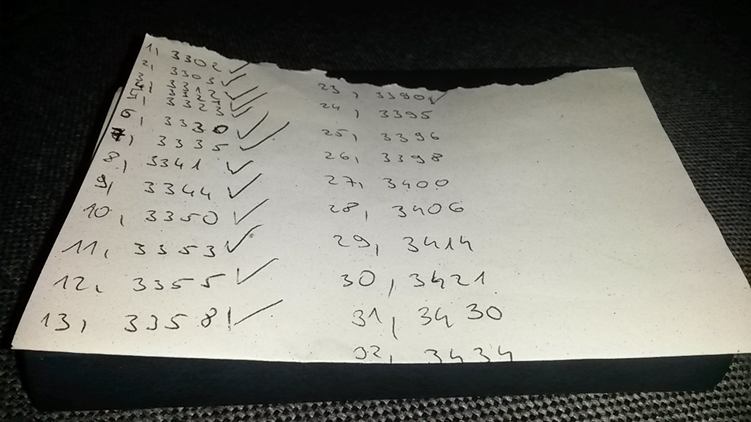 1, 3302 ✓
2, 3303 ✓
3312 ✓
✓
6, 3330 ✓
7, 3335 ✓
8, 3341 ✓
9, 3344 ✓
10, 3350 ✓
11, 3353 ✓
12, 3355 ✓
13, 3358 ✓
23, 3390 ✓
24, 3395
25, 3396
26, 3398
27, 3400
28, 3406
29, 3414
30, 3421
31, 3430
32, 3434